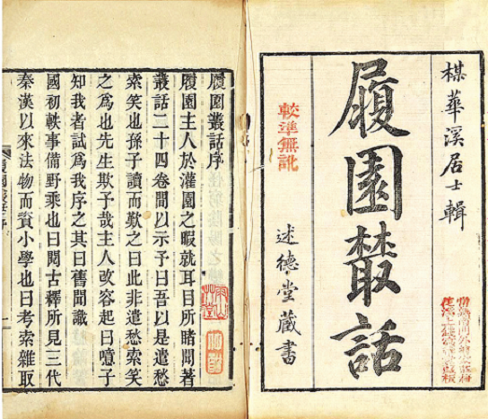 楳華溪居士輯
履園叢話
較準無訛
述德堂藏書
履園叢話序
履園主人於灌園之暇就耳目所睹聞著
叢話二十四卷間以示子曰吾以是遣愁
索笑也孫子讀而歎之曰此非遣愁索笑
之爲也先生欺予哉主人改容起曰噫子
知我者試爲我序之其曰舊聞識
國初軼事備野乘也曰閱古釋所見三代
秦漢以來法物而資小學也曰考索雜取